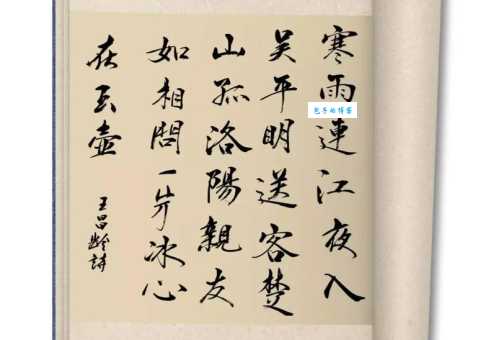 寒雨連江夜入
吴平明送客楚
山孤洛陽親友
如相問一片冰心
在玉壶
王昌龄詩
包子的博客